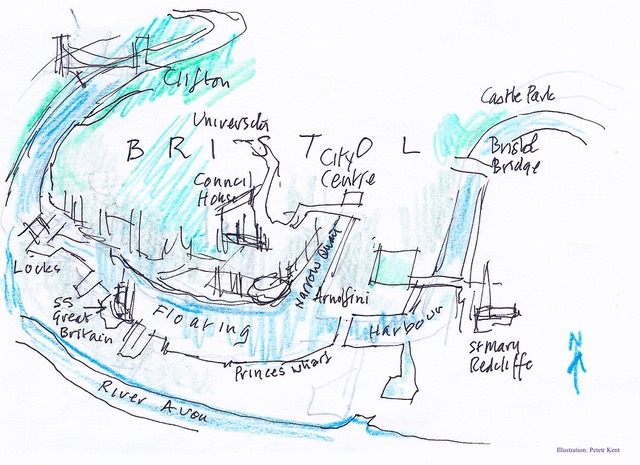 Clifton
Castle Park
University
BRISTOL
City
Centre
Bristol
Bridge
Council
House
Narrow Quay
Locks
SS
Great
Britain
Floating
Arnolfini
Harbour
St Mary
Redcliffe
Princes Wharf
River Avon
N
Illustration: Petetr Kent